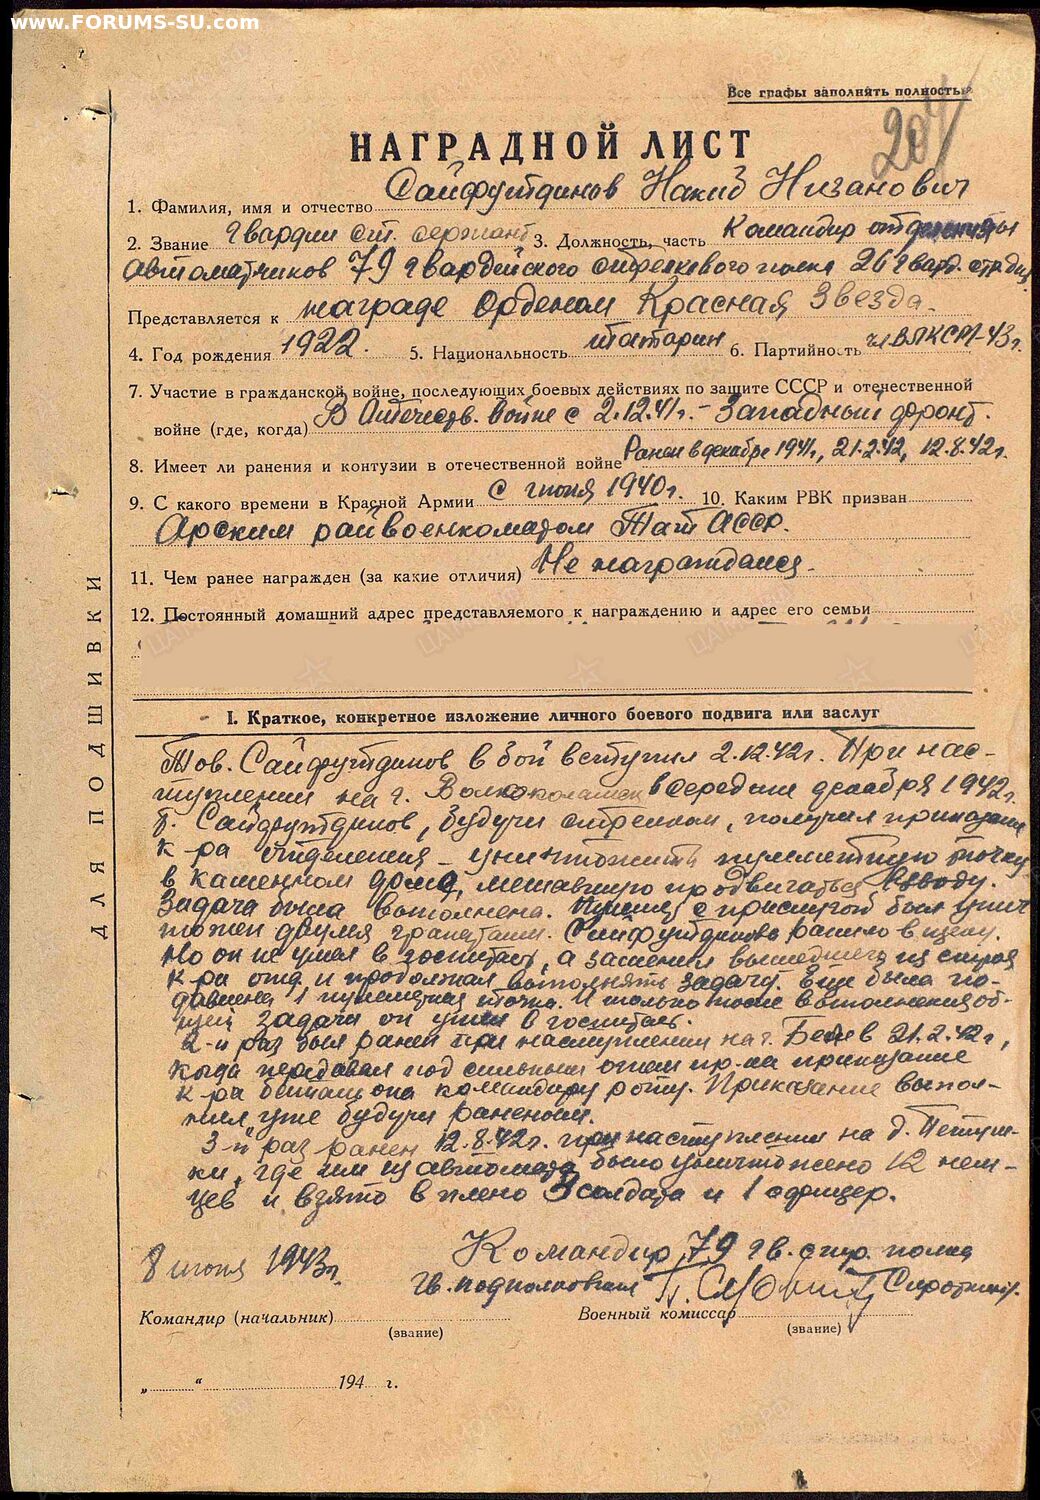 www.FORUMS-SU.com
Все графы заполнять полностью
204
НАГРАДНОЙ ЛИСТ
1. Фамилия, имя и отчество Сайфутдинов Накиб Низанович
2. Звание гвардии ст. сержант 3. Должность, часть Командир отделения
автоматчиков 79 гвардейского стрелкового полка 26 гвард. стр. див.
Представляется к награде Орденом Красная Звезда.
4. Год рождения 1922. 5. Национальность татарин 6. Партийность чл ВЛКСМ-43г.
7. Участие в гражданской войне, последующих боевых действиях по защите СССР и отечественной
войне (где, когда) В Отечеств. войне с 2.12.41г. - Западный фронт.
8. Имеет ли ранения и контузии в отечественной войне Ранен в декабре 1941г., 21.2.42, 12.8.42г.
9. С какого времени в Красной Армии с июня 1940г. 10. Каким РВК призван
Арским райвоенкоматом Тат АССР.
11. Чем ранее награжден (за какие отличия) Не награждался.
12. Постоянный домашний адрес представляемого к награждению и адрес его семьи
ДЛЯ ПОДШИВКИ
I. Краткое, конкретное изложение личного боевого подвига или заслуг
Тов. Сайфутдинов в бой вступил 2.12.42г. При нас-
туплении на г. Волоколамск в середине декабря 1942г.
т. Сайфутдинов, будучи стрелком, получил приказание
к-ра отделения - уничтожить пулеметную точку
в каменном доме, мешавшую продвигаться взводу.
Задача была выполнена. с прислугой был унич
тожен двумя гранатами. Сайфутдинова ранило в щеку.
Но он не ушел в госпиталь, а заменил вышедшего из строя
к-ра отд. и продолжал выполнять задачу. Еще была по-
давлена 1 пулеметная точка. И только после выполнения об-
щей задачи он ушел в госпиталь.
2-й раз был ранен при наступлении на г. Белев 21.2.42г.,
когда передавал под сильным огнем пр-ка приказание
к-ра батальона командиру роты. Приказание выпол-
нил, уже будучи раненым.
3-й раз ранен 12.8.42г. при наступлении на д. Петуш-
ки, где им из автомата было уничтожено 12 нем-
цев и взято в плен 3 солдата и 1 офицер.
8 июня 1943г.
Командир 79 гв. стр. полка
гв. подполковник Сироткин
Командир (начальник)
(звание)
Военный комиссар
(звание)
„ “ 194 г.